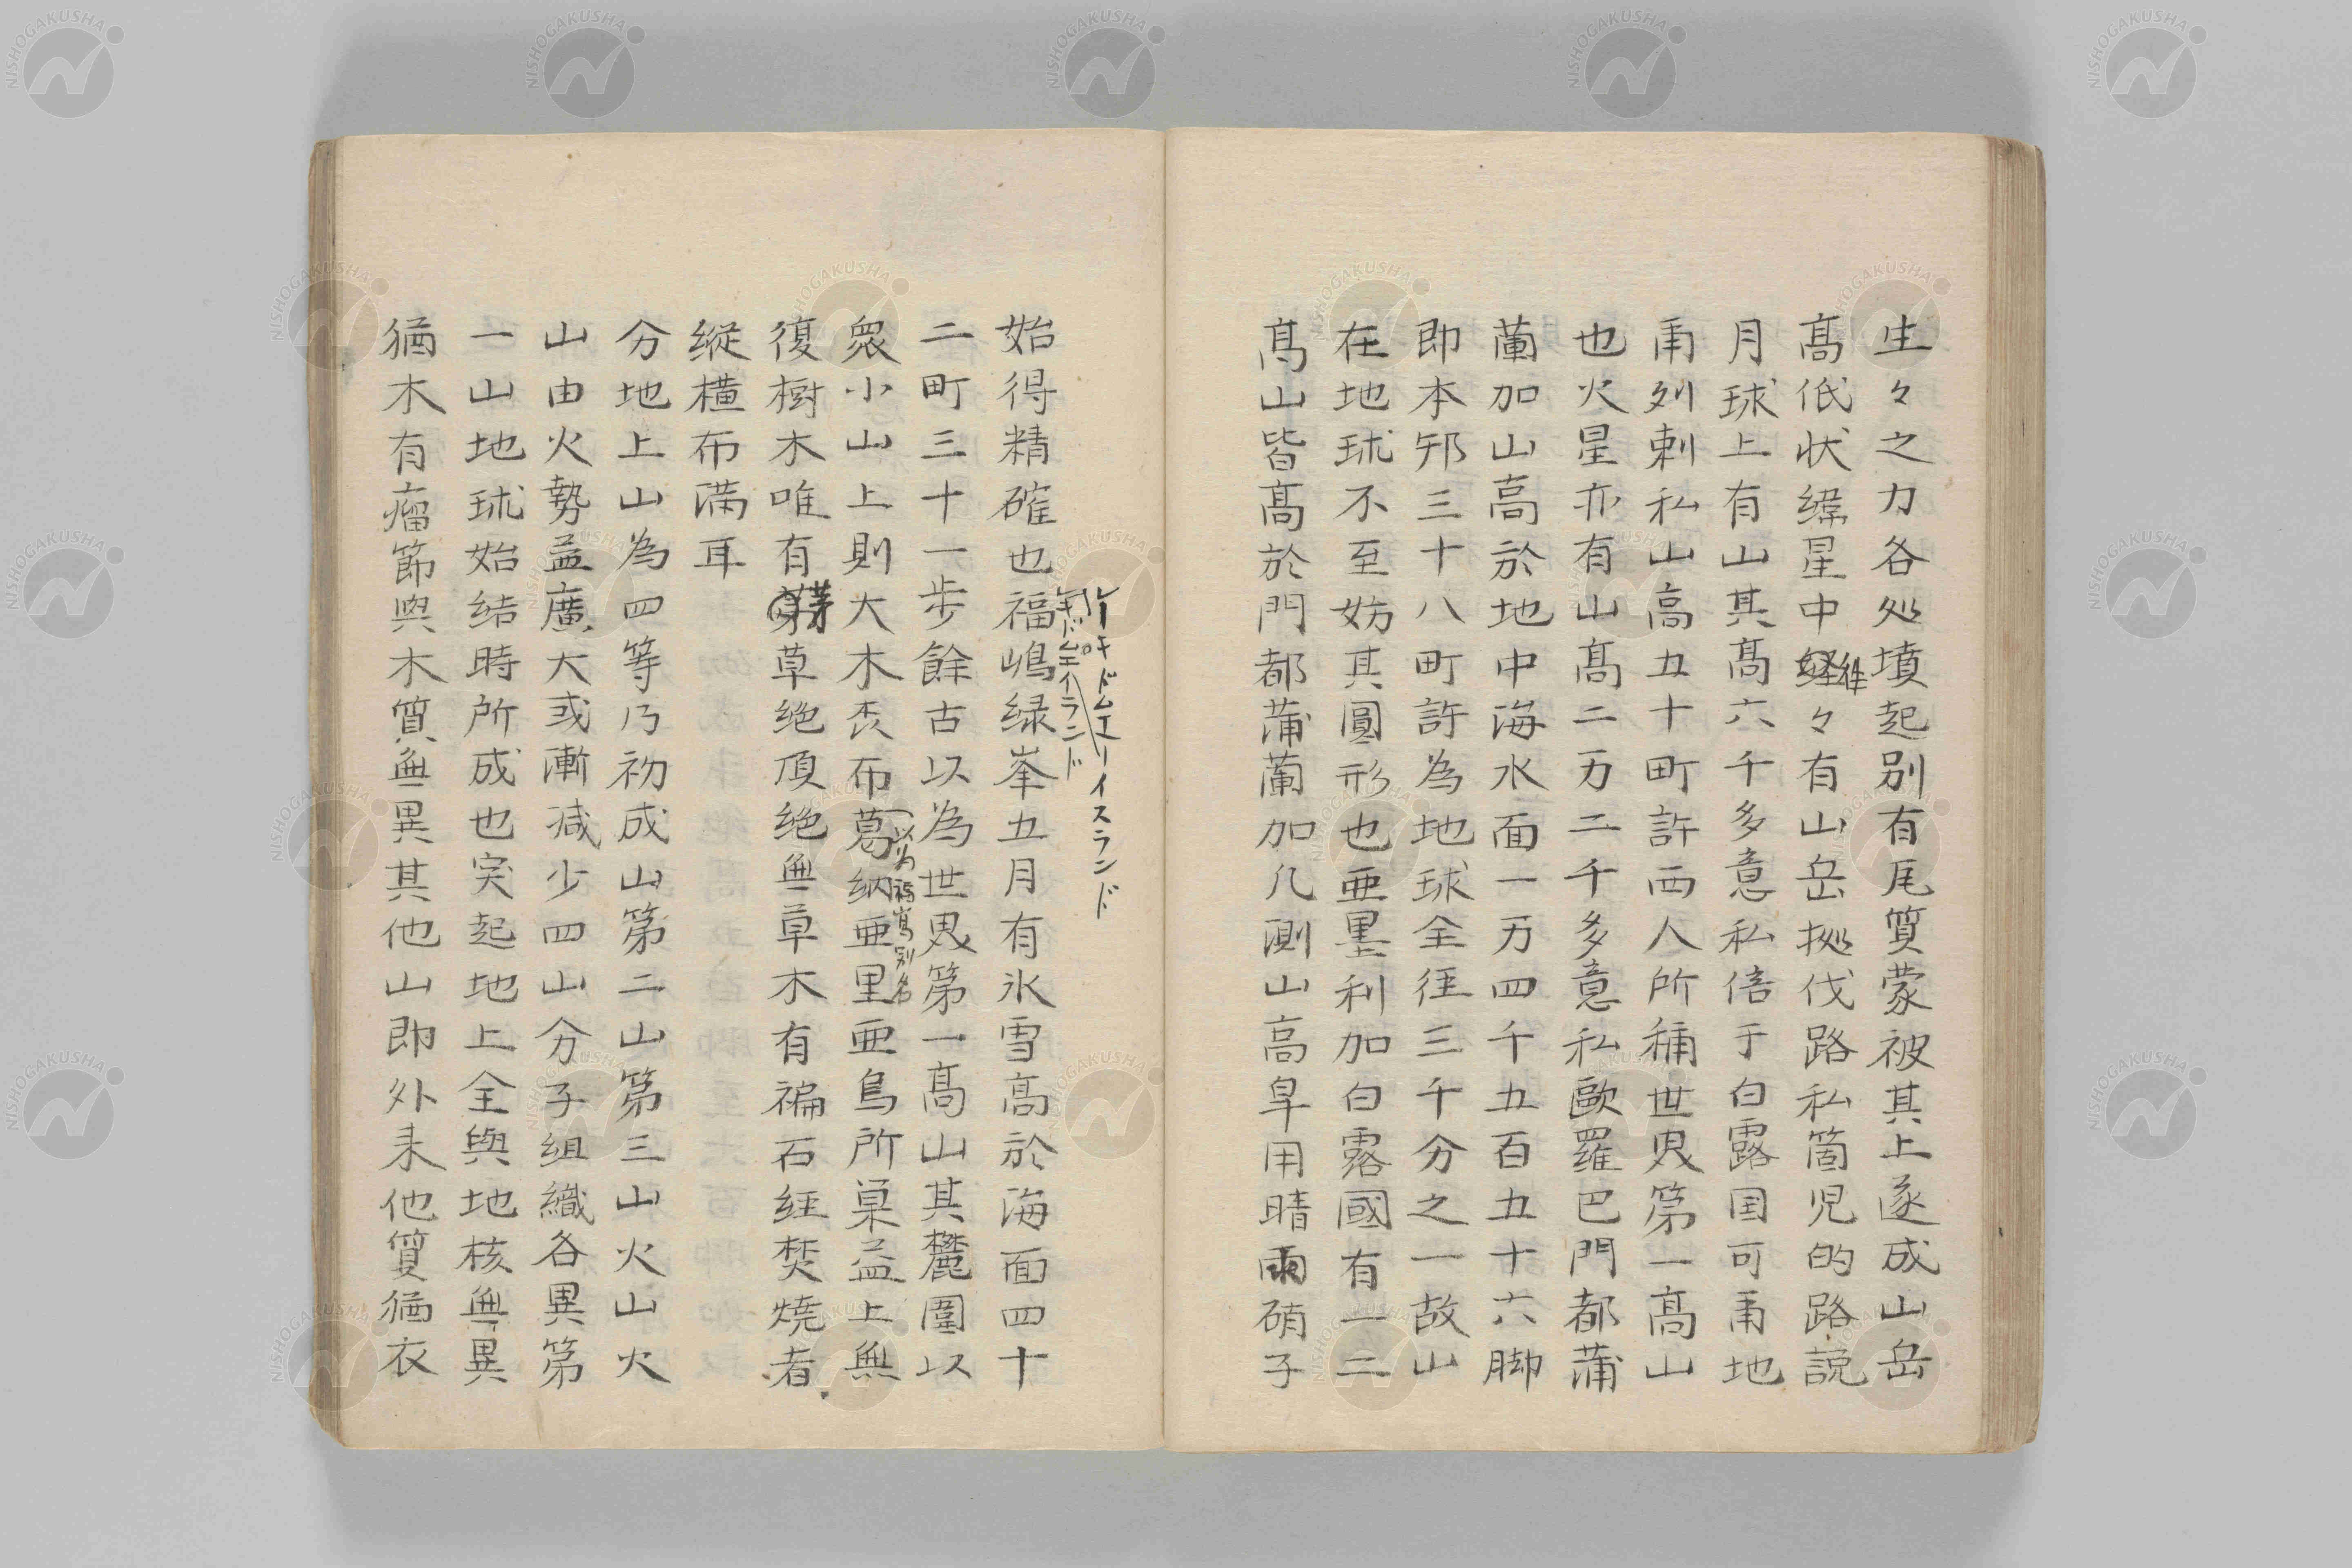 生々之力各処墳起別有尾質蒙被其上遂成山岳
髙低状緯星中経往々有山岳拠伐路私箇児的路説
月球上有山其髙六千多意私倍于白露国可甬地
甬列剌私山高五十町許西人所稱世界第一高山
也火星亦有山髙二万二千多意私歐羅巴門都蒲
蘭加山高於地中海水面一万四千五百五十六脚
即本邦三十八町許為地球全径三千分之一故山
在地球不至妨其圓形也亜墨利加白露國有一二
髙山皆髙於門都蒲蘭加凡測山高旱用晴雨硝子
始得精確也福嶋緑峯五月有氷雪高於海面四十
レーキドムエーイスランド
イランド
二町三十一歩餘古以為世界第一高山其麓圍以
以为福嶌别名
衆小山上則大木森布葛納亜里亜鳥所巣益上無
復樹木唯有茅草絶頂絶無草木有褊石経焚焼者
縦横布満耳
分地上山為四等乃初成山第二山第三山火山火
山由火勢益廣大或漸减少四山分子組織各異第
一山地球始結時所成也突起地上全與地核無異
猶木有瘤節與木質無異其他山即外来他質猶衣
NISHOGAKUSHA